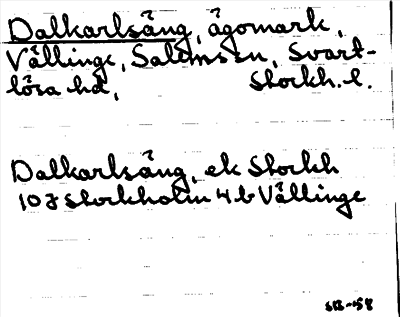 Dalkarlsäng, ägomark,
Vällinge, Salems sn, Svart-
lösa hd, Stockh. l.
Dalkarlsäng, ek Stockh
10J Stockholm 4 b Vällinge